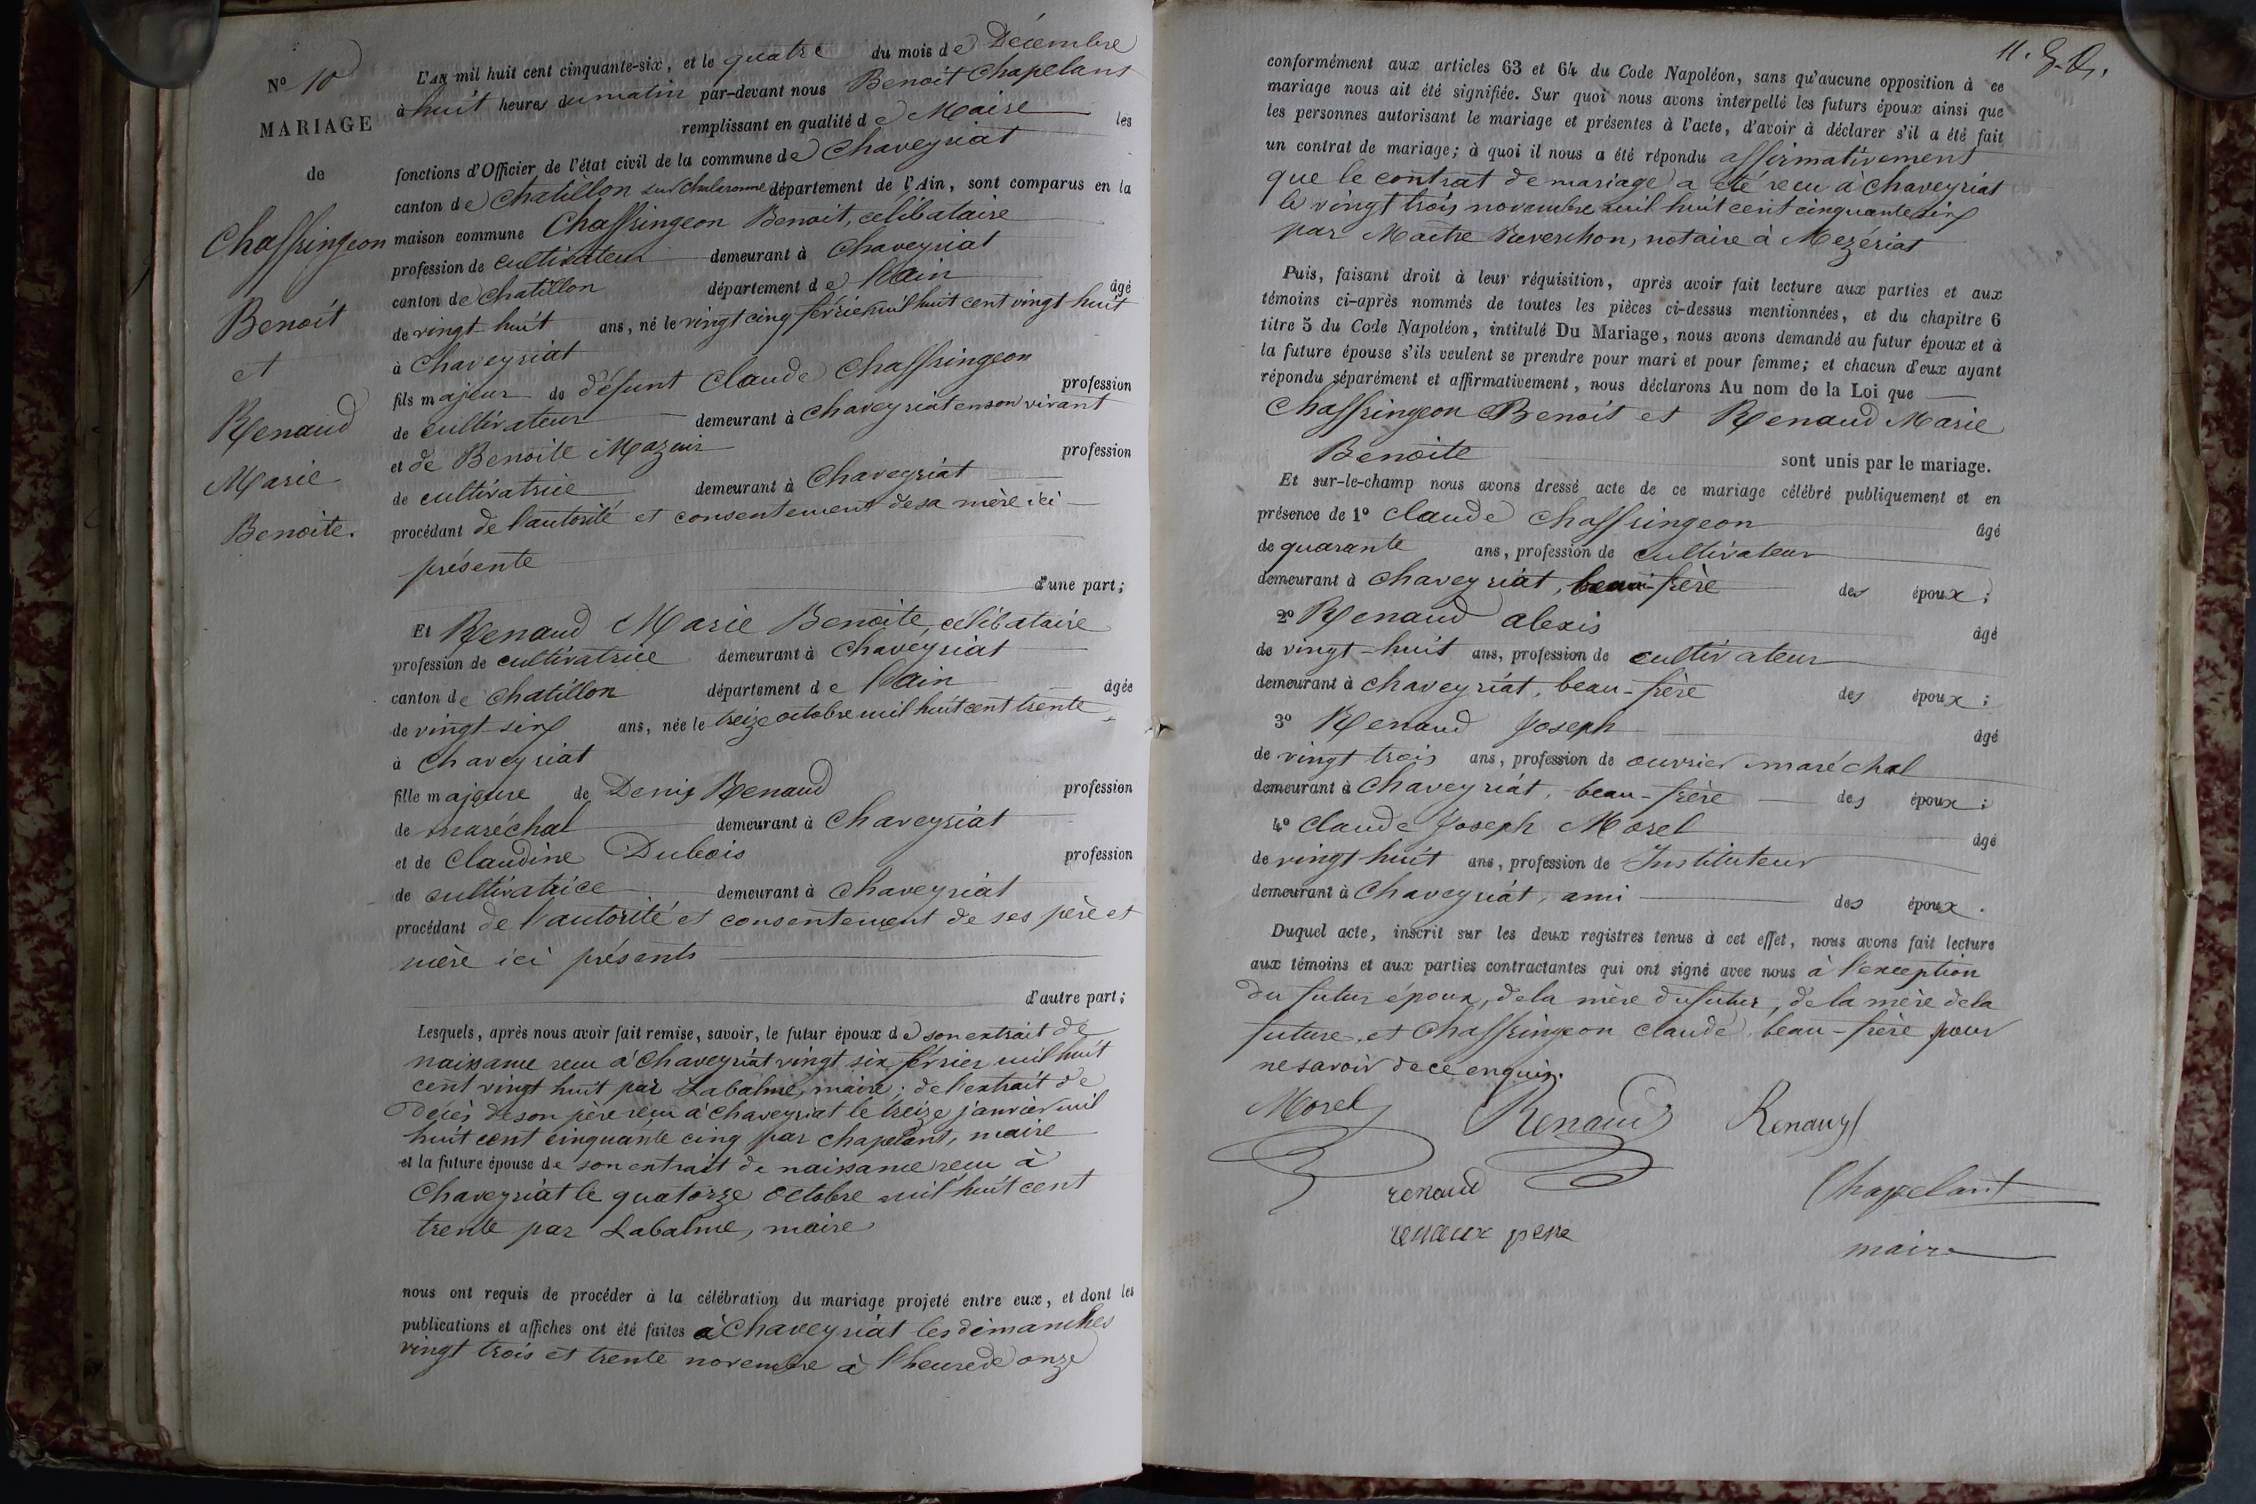 N° 10
MARIAGE
de
Chaffringeon
Benoit
et
Renaud
Marie
Benoite.
L'AN mil huit cent cinquante-six, et le quatre du mois de Décembre
à huit heures du matin par-devant nous Benoit Chapelant
remplissant en qualité de Maire les
fonctions d'Officier de l'état civil de la commune de Chaveyriat
canton de Chatillon sur Chalaronne département de l'Ain, sont comparus en la
maison commune Chaffringeon Benoit, célibataire
profession de cultivateur demeurant à Chaveyriat
canton de Chatillon département de l'ain âgé
de vingt-huit ans, né le vingt cinq février mil huit cent vingt huit
à Chaveyriat
fils majeur de défunt Claude Chaffringeon profession
de cultivateur demeurant à Chaveyriat en son vivant
et de Benoite Mazuir profession
de cultivatrice demeurant à Chaveyriat
procédant de l'autorité et consentement de sa mère ici
présente
d'une part;
Et Renaud Marie Benoite, célibataire
profession de cultivatrice demeurant à Chaveyriat
canton de Chatillon département de l'ain âgée
de vingt-six ans, née le treize octobre mil huit cent trente
à Chaveyriat
fille majeure de Denis Renaud profession
de maréchal demeurant à Chaveyriat
et de Claudine Dubois profession
de cultivatrice demeurant à Chaveyriat
procédant de l'autorité et consentement de ses père et
mère ici présents
d'autre part;
Lesquels, après nous avoir fait remise, savoir, le futur époux de son extrait de
naissance reçu à Chaveyriat vingt six février mil huit
cent vingt huit par Labalme, maire; de l'extrait de
décès de son père reçu à Chaveyriat le treize janvier mil
huit cent cinquante cinq par Chapelant, maire
et la future épouse de son extrait de naissance reçu à
Chaveyriat le quatorze octobre mil huit cent
trente par Labalme, maire
nous ont requis de procéder à la célébration du mariage projeté entre eux, et dont les
publications et affiches ont été faites à Chaveyriat les dimanches
vingt trois et trente novembre à l'heure de onze
conformément aux articles 63 et 64 du Code Napoléon, sans qu'aucune opposition à ce
mariage nous ait été signifiée. Sur quoi nous avons interpellé les futurs époux ainsi que
les personnes autorisant le mariage et présentes à l'acte, d'avoir à déclarer s'il a été fait
un contrat de mariage; à quoi il nous a été répondu affirmativement
que le contrat de mariage a été reçu à Chaveyriat
le vingt trois novembre mil huit cent cinquante six
par Maitre Raverchon, notaire à Mezériat
Puis, faisant droit à leur réquisition, après avoir fait lecture aux parties et aux
témoins ci-après nommés de toutes les pièces ci-dessus mentionnées, et du chapitre 6
titre 5 du Code Napoléon, intitulé Du Mariage, nous avons demandé au futur époux et à
la future épouse s'ils veulent se prendre pour mari et pour femme; et chacun d'eux ayant
répondu séparément et affirmativement, nous déclarons Au nom de la Loi que
Chaffringeon Benoit et Renaud Marie
Benoite sont unis par le mariage.
Et sur-le-champ nous avons dressé acte de ce mariage célébré publiquement et en
présence de 1° Claude Chaffringeon âgé
de quarante ans, profession de cultivateur
demeurant à Chaveyriat, beau-frère des époux;
2° Renaud alexis âgé
de vingt-huit ans, profession de cultivateur
demeurant à Chaveyriat, beau-frère des époux;
3° Renaud Joseph âgé
de vingt trois ans, profession de ouvrier maréchal
demeurant à Chaveyriat, beau-frère des époux;
4° Claude Joseph Morel âgé
de vingt huit ans, profession de Instituteur
demeurant à Chaveyriat, ami des époux.
Duquel acte, inscrit sur les deux registres tenus à cet effet, nous avons fait lecture
aux témoins et aux parties contractantes qui ont signé avec nous à l'exception
du futur époux, de la mère du futur, de la mère de la
future, et Chaffringeon Claude, beau-frère pour
ne savoir de ce enquis.
Morel Renaud Renaud
renaud Chapelant
renaux pere maire